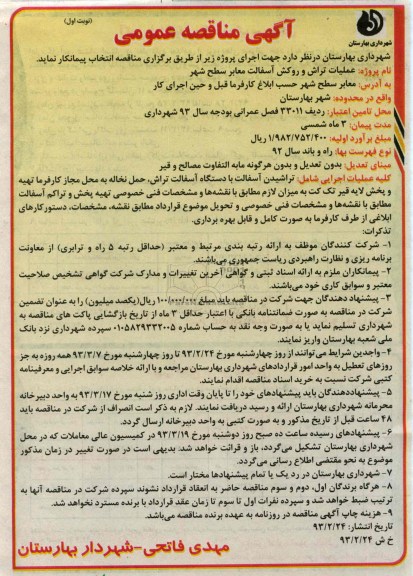 (نوبت اول)
آگهی مناقصه عمومی
شهرداری بهارستان
شهرداری بهارستان درنظر دارد جهت اجرای پروژه زیر از طریق برگزاری مناقصه انتخاب پیمانکار نماید.
نام پروژه: عملیات تراش و روکش آسفالت معابر سطح شهر
به آدرس: معابر سطح شهر حسب ابلاغ کارفرما قبل و حین اجرای کار
واقع در محدوده: شهر بهارستان
محل تامین اعتبار: ردیف ۳۳۰۱۱ فصل عمرانی بودجه سال ۹۳ شهرداری
مدت پیمان: ۳ ماه شمسی
مبلغ برآورد اولیه: ۱/۹۸۲/۷۵۲/۴۰۰ ریال
نوع فهرست بها: راه و باند سال ۹۲
مبنای تعدیل: بدون تعدیل و بدون هرگونه مابه التفاوت مصالح و قیر
کلیه عملیات اجرایی شامل: تراشیدن آسفالت با دستگاه آسفالت تراش، حمل نخاله به محل مجاز کارفرما تهیه
و پخش لایه قیر تک کت به میزان لازم مطابق با نقشه‌ها و مشخصات فنی خصوصی تهیه پخش و تراکم آسفالت
مطابق با نقشه‌ها و مشخصات فنی خصوصی و تحویل موضوع قرارداد مطابق نقشه، مشخصات، دستورکارهای
ابلاغی از طرف کارفرما به صورت کامل و قابل بهره برداری.
تذکرات:
۱- شرکت کنندگان موظف به ارائه رتبه بندی مرتبط و معتبر (حداقل رتبه ۵ راه و ترابری) از معاونت
برنامه ریزی و نظارت راهبردی ریاست جمهوری می‌باشند.
۲- پیمانکاران ملزم به ارائه اسناد ثبتی و گواهی آخرین تغییرات و مدارک شرکت گواهی تشخیص صلاحیت
معتبر و سوابق کاری خود می‌باشند.
۳- پیشنهاد دهندگان جهت شرکت در مناقصه باید مبلغ ۱۰۰/۰۰۰/۰۰۰ ریال(یکصد میلیون) را به عنوان تضمین
شرکت در مناقصه به صورت ضمانتنامه بانکی با اعتبار حداقل ۳ ماه از تاریخ بازگشایی پاکت های مناقصه به
شهرداری تسلیم نماید یا به صورت وجه نقد به حساب شماره ۰۱۰۵۸۲۹۳۳۲۰۰۵ سپرده شهرداری نزد بانک
ملی شعبه بهارستان واریز نمایند.
۴- واجدین شرایط می‌توانند از روز چهارشنبه مورخ ۹۳/۲/۲۴ تا روز چهارشنبه مورخ ۹۳/۳/۷ همه روزه به جز
روزهای تعطیل به واحد امور قراردادهای شهرداری بهارستان مراجعه و با ارائه خلاصه سوابق اجرایی و معرفینامه
کتبی شرکت نسبت به خرید اسناد مناقصه اقدام نمایند.
۵- پیشنهاددهندگان باید پیشنهادهای خود را تا پایان وقت اداری روز شنبه مورخ ۹۳/۳/۱۷ به واحد دبیرخانه
محرمانه شهرداری بهارستان ارائه و رسید دریافت نمایند. لازم به ذکر است انصراف از شرکت در مناقصه باید
۴۸ ساعت قبل از تاریخ مذکور و به صورت کتبی به واحد دبیرخانه ارسال گردد.
۶- پیشنهادهای رسیده ساعت ده صبح روز دوشنبه مورخ ۹۳/۳/۱۹ در کمیسیون عالی معاملات که در محل
شهرداری بهارستان تشکیل می‌گردد، باز و قرائت خواهد شد: بدیهی است در صورت تغییر در زمان مذکور
موضوع به نحو مقتضی اطلاع رسانی می‌گردد.
۷- شهرداری بهارستان در رد یک یا تمام پیشنهادها مختار است.
۸- هرگاه برندگان اول، دوم و سوم مناقصه حاضر به انعقاد قرارداد نشوند سپرده شرکت در مناقصه آنها به
ترتیب ضبط خواهد شد و سپرده نفرات اول تا سوم تا زمان عقد قرارداد با برنده مسترد نخواهد شد.
۹- هزینه چاپ آگهی مناقصه در روزنامه به عهده برنده مناقصه می‌باشد.
تاریخ انتشار: ۹۳/۲/۲۴
خ ش ۹۳/۲/۲۴
مهدی فاتحی-شهردار بهارستان